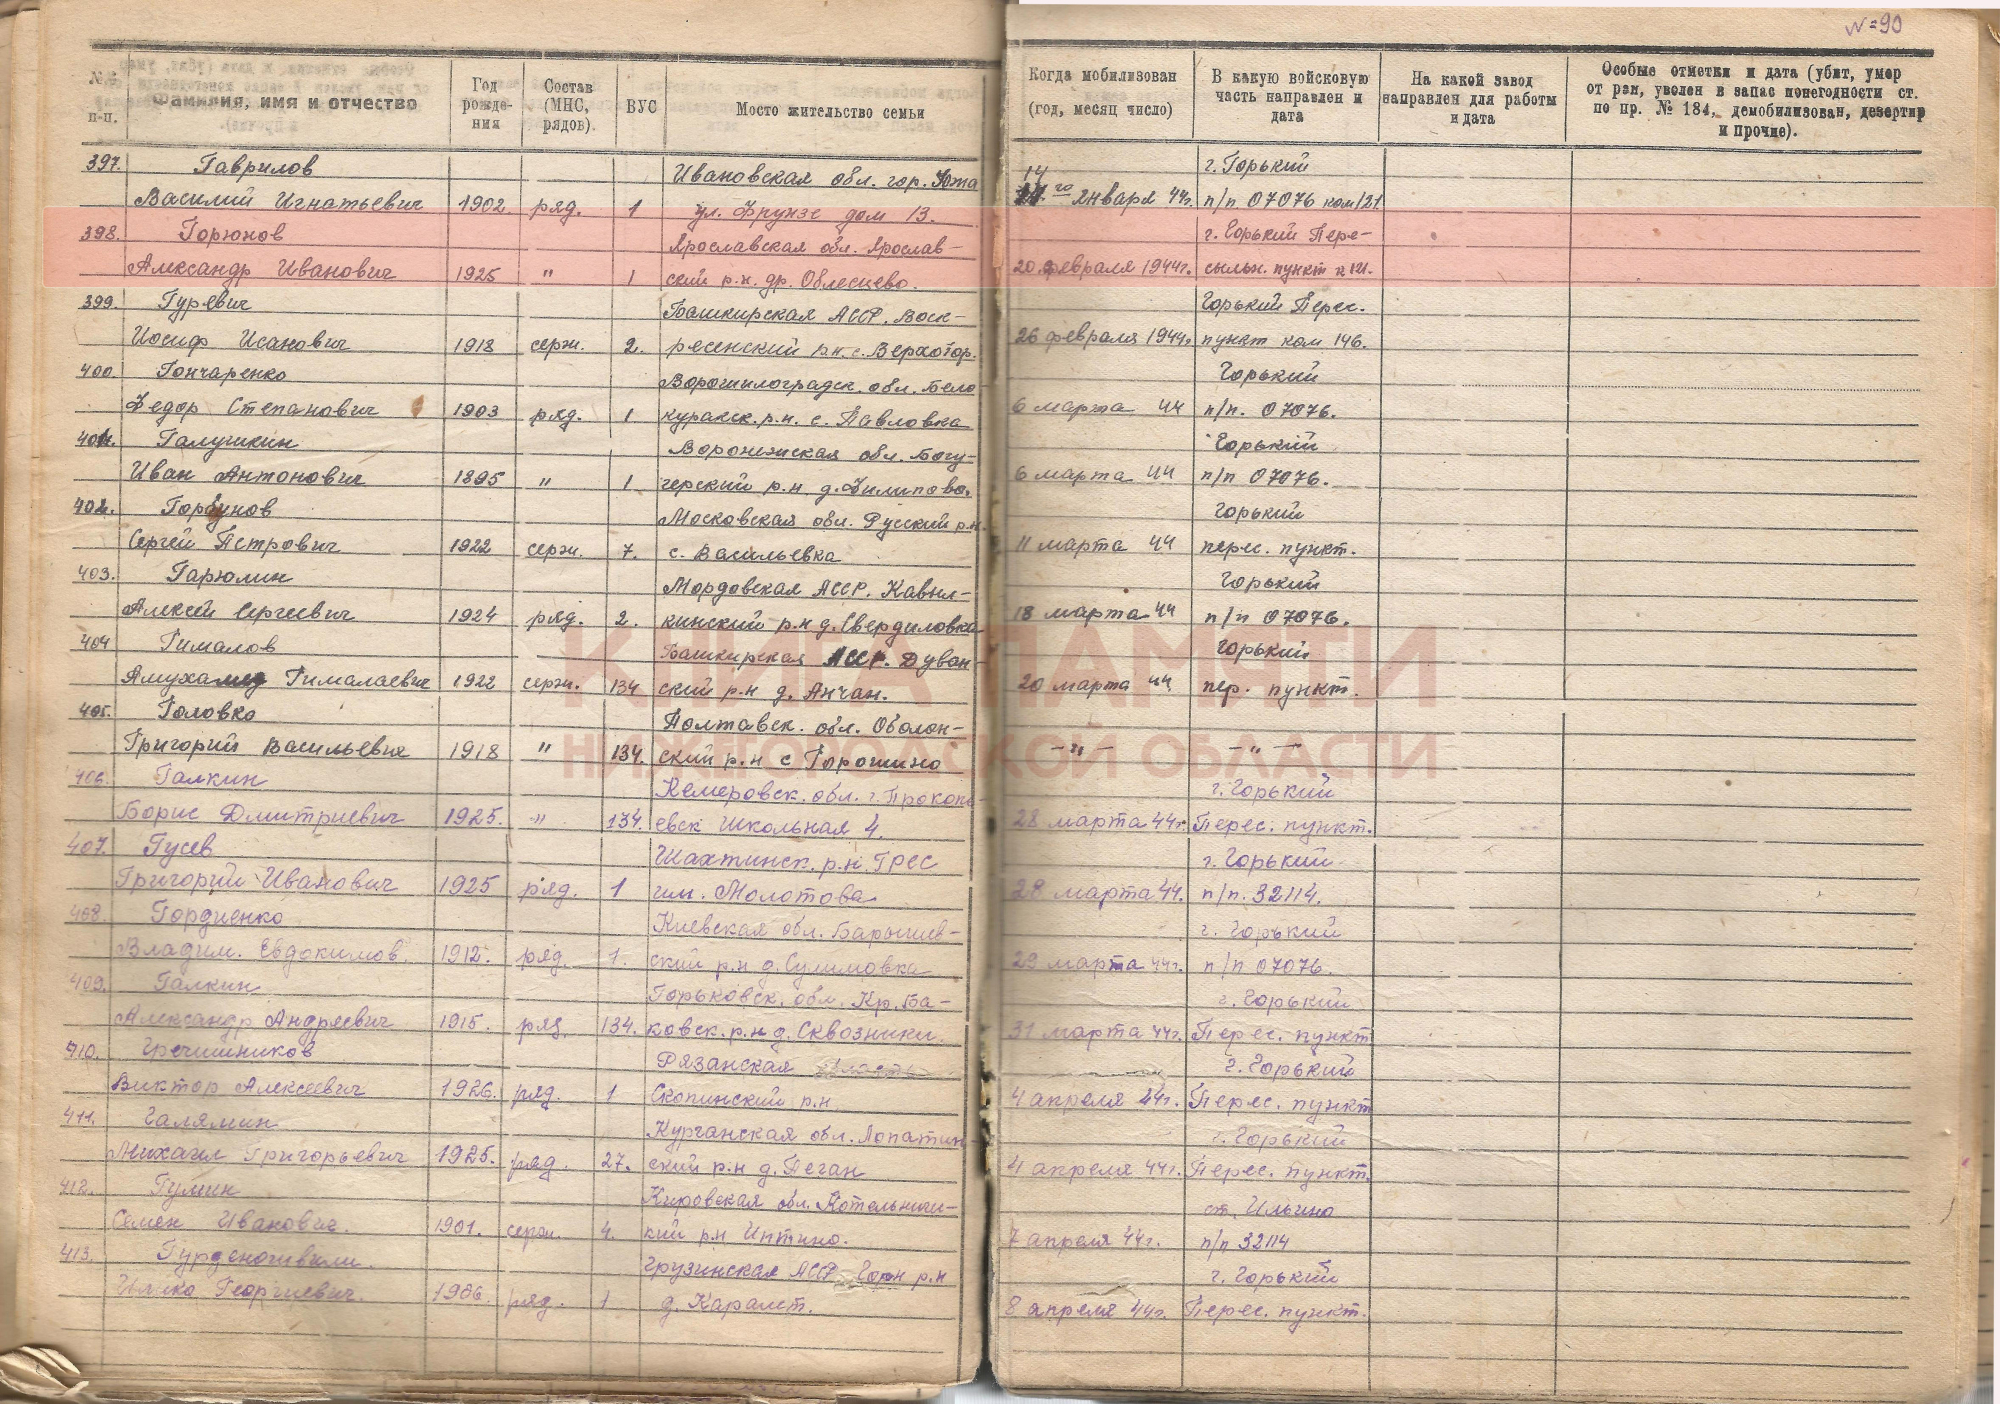 №=90
№№ п-п.
Фамилия, имя и отчество
Год рожде- ния
Состав (МНС, рядов).
ВУС
Мосто жительство семьи
Когда мобилизован (год, месяц число)
В какую войсковую часть направлен и дата
На какой завод направлен для работы и дата
Особые отметки и дата (убит, умер от ран, уволен в запас понегодности ст. по пр. № 184, демобилизован, дезертир и прочие).
397. Гаврилов Ивановская обл. гор. Южа 14 г. Горький
Василий Игнатьевич 1902. ряд. 1 ул. Фрунзе дом 13. го января 44г. п/п 07076 ком 121
398. Горюнов Ярославская обл. Ярослав- г. Горький Пере-
Александр Иванович 1925 " 1 ский р.н. др. 20 февраля 1944г. сыльн. пункт к 121.
399. Гуревич Башкирская АССР. Воск- Горький Перес.
Иосиф Исанович 1918 серж. 2. ресенский р.н. с. Верхотор. 26 февраля 1944г. пункт ком 146.
400. Гончаренко Ворошилоградск. обл. Бело- Горький
Федор Степанович 1903 ряд. 1 куракск. р.н. с. Павловка 6 марта 44 п/п. 07076.
401. Галушкин Воронежская обл. Богу- Горький
Иван Антонович 1895 " 1 черский р.н. д. Филипово. 6 марта 44 п/п 07076.
402. Горбунов Московская обл. Русский р.н. Горький
Сергей Петрович 1922 серж. 7. с. Васильевка 11 марта 44 перес. пункт.
403. Гарюлин Мордовская АССР. Кавыл- Горький
Алексей Сергеевич 1924 ряд. 2. кинский р.н д. Свердиловка 18 марта 44 п/п 07076.
404 Гималов Башкирская АССР. Дуван- Горький
Гималаевич 1922 серж. 134 ский р.н д. Анчан. 20 марта 44 пер. пункт.
405. Головко Полтавск. обл. Оболон-
Григорий Васильевич 1918 " 134. ский р.н с Горошино -"- -"-
406. Галкин Кемеровск. обл. г. Прокопь- г. Горький
Борис Дмитриевич 1925. -"- 134. евск Школьная 4. 28 марта 44г. Перес. пункт.
407. Гусев Шахтинск. р.н. ГРЕС г. Горький
Григорий Иванович 1925 ряд. 1 им. Молотова 28 марта 44. п/п. 32114.
408. Гордиенко Киевская обл. Барышев- г. Горький
Владим. Евдокимов. 1912. ряд. 1. ский р.н д. Сулимовка 29 марта 44г. п/п 07076.
409. Галкин Горьковск. обл. Кр. Ба- г. Горький
Александр Андреевич 1915. ряд. 134. ковск. р.н д. Сквозники. 31 марта 44г. Перес. пункт
410. Гречишников Рязанская область г. Горький
Виктор Алексеевич 1926. ряд. 1 Скопинский р.н 4 апреля 44г. Перес. пункт
411. Галямин Курганская обл. Лопатин- г. Горький
Михаил Григорьевич 1925. ряд. 27. ский р.н д. Пеган 4 апреля 44г. Перес. пункт.
412. Гулин Кировская обл. Котельнич- ст. Ильино
Семен Иванович. 1901. серж. 4. кий р.н Интино. 7 апреля 44г. п/п 32114
413. Грузинская АССР Гори р.н г. Горький
Георгиевич. 1906. ряд. 1 д. Каралет. 8 апреля 44г. Перес. пункт.
КНИГА ПАМЯТИ
НИЖЕГОРОДСКОЙ ОБЛАСТИ